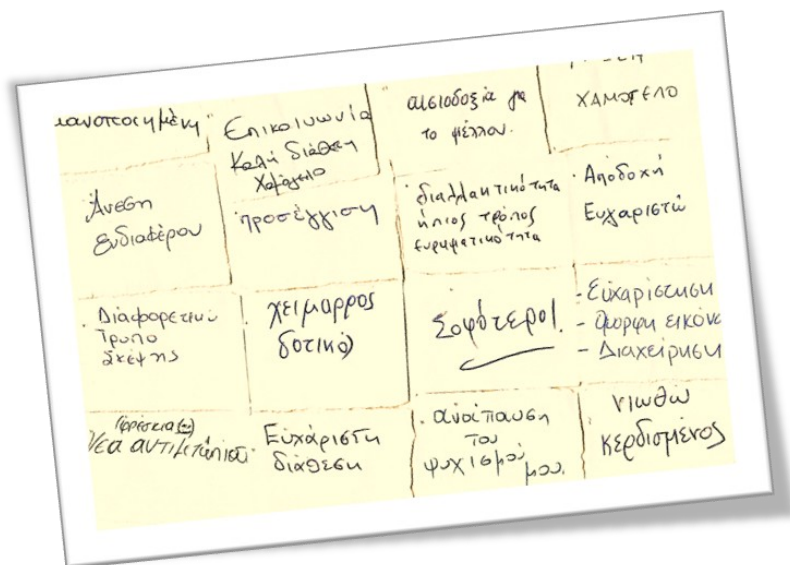 Επικοινωνία
Καλή διάθεση
Χαμόγελο
αισιοδοξία για
το μέλλον.
ΧΑΜΟΓΕΛΟ
Άνεση
ενδιαφέρον
προσέγγιση
διαλλακτικότητα
ήπιος τρόπος
ευρηματικότητα
Αποδοχή
Ευχαριστώ
Διαφορετικό
τρόπο
σκέψης
χείμαρρος
δοτικό
Σοφότεροι.
- Ευχαρίστηση
- όμορφη εικόνα
- Διαχείρηση
Νέα
Ευχάριστη
διάθεση
ανάπαυση
του
ψυχισμού
μου.
νιώθω
κερδισμένος